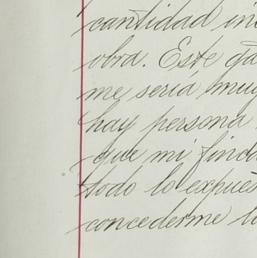 cantidad in
obra. Este ga
me seria muy
hay persona
que mi finda
todo lo expues
concederme l